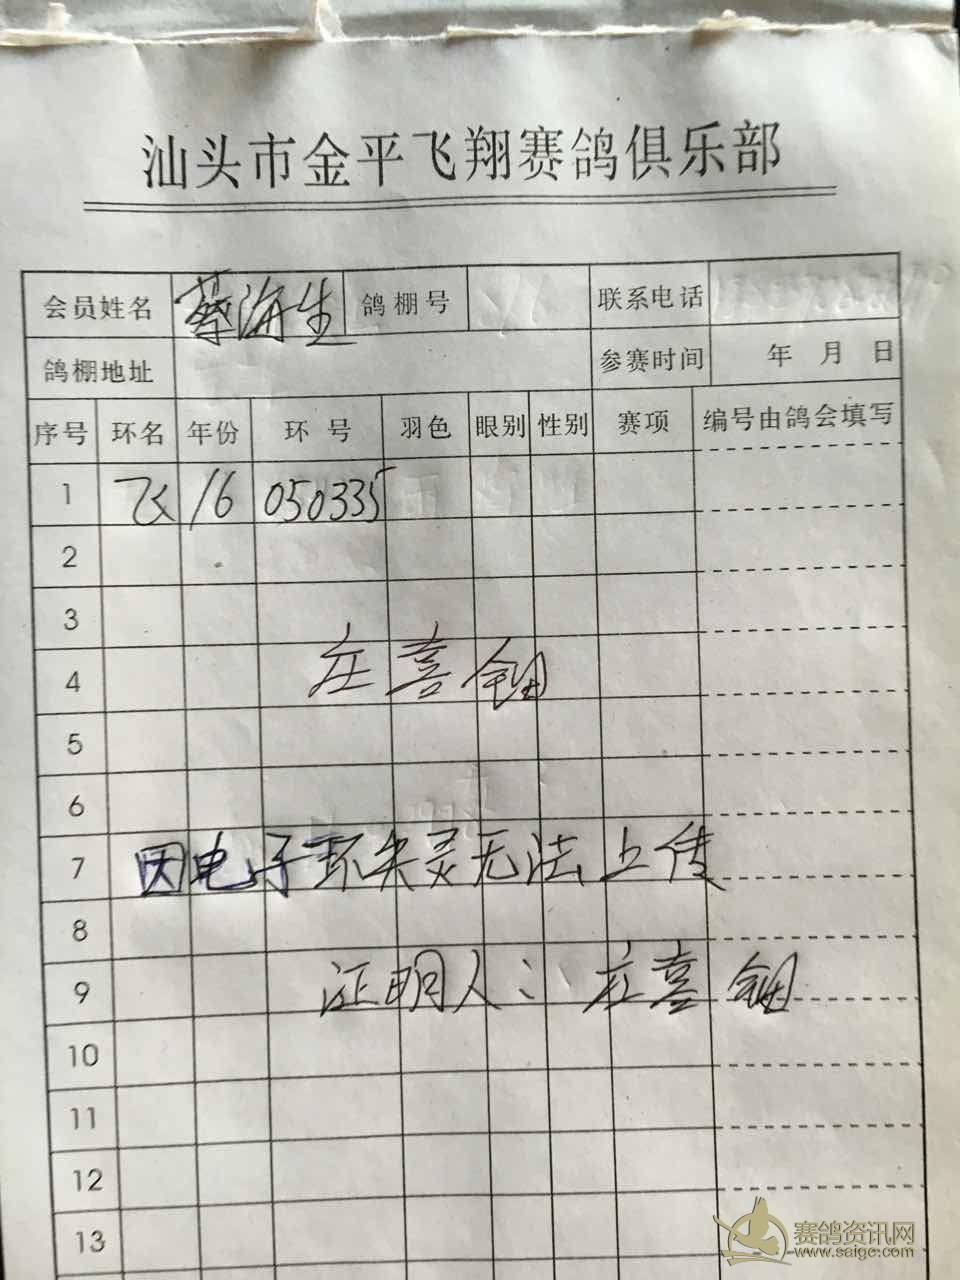 汕头市金平飞翔赛鸽俱乐部
会员姓名 蔡海生 鸽棚号 联系电话
鸽棚地址 参赛时间 年 月 日
序号 环名 年份 环号 羽色 眼别 性别 赛项 编号由鸽会填写
1 飞 16 050335
2
3
4 庄喜钿
5
6
7 因电子环失灵无法上传
8
9 证明人：庄喜钿
10
11
12
13
赛鸽资讯网
www.saige.com